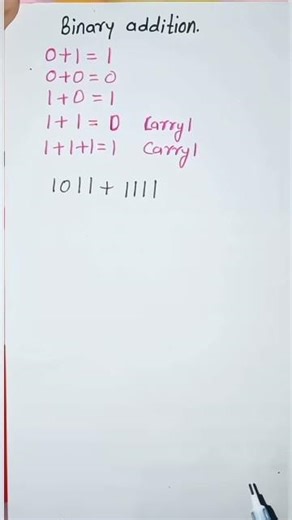 Binary addition.
0+1=1
0+0=0
1+0=1
1+1=0 Carry1
1+1+1=1 Carry1
1011+1111